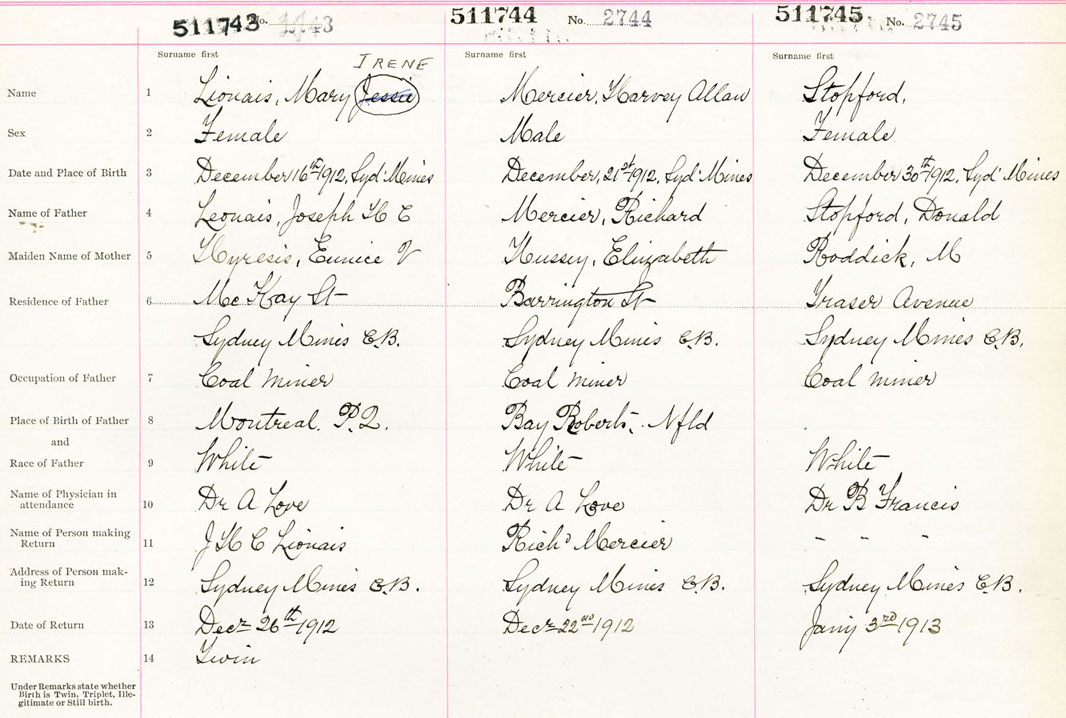 511743 No. 2743 511744 No. 2744 511745 No. 2745
Surname first Surname first Surname first
IRENE
Name 1 Lionais, Mary Jessie Mercier, Harvey Allan Stopford,
Sex 2 Female Male Female
Date and Place of Birth 3 December 16th 1912, Syd' Mines December, 21st 1912, Syd' Mines December 30th 1912, Syd' Mines
Name of Father 4 Leonais, Joseph H C Mercier, Richard Stopford, Donald
Maiden Name of Mother 5 Hyresis, Eunice V Hussey, Elizabeth Roddick, M
Residence of Father 6 Mc Kay St Barrington St Fraser Avenue
Sydney Mines C.B. Sydney Mines C.B. Sydney Mines C.B.
Occupation of Father 7 Coal miner Coal miner Coal miner
Place of Birth of Father 8 Montreal. P.Q. Bay Roberts, Nfld
and
Race of Father 9 White White White
Name of Physician in
attendance 10 Dr A Love Dr A Love Dr B Francis
Name of Person making
Return 11 J H C Lionais Richd Mercier " " "
Address of Person mak-
ing Return 12 Sydney Mines C.B. Sydney Mines C.B. Sydney Mines C.B.
Date of Return 13 Decr 26th 1912 Decr 22nd 1912 Jany 3rd 1913
REMARKS 14 Twin
Under Remarks state whether
Birth is Twin, Triplet, Ille-
gitimate or Still birth.